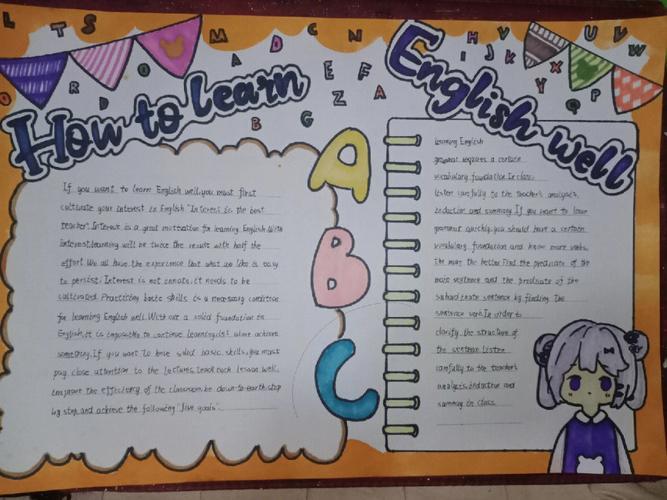 How to learn
English well
A
B
C
If you want to learn English well, you must first
cultivate your interest in English "Interest is the best
teacher". Interest is a great motivation for learning English. With
interest, learning will be twice the result with half the
effort. We all have the experience that what we like is easy
to persist. Interest is not innate. it needs to be
cultivated. Practicing basic skills is a necessary condition
for learning English well. Without a solid foundation in
English, it is impossible to continue learning, let alone achieve
something. If you want to have solid basic skills, you must
pay close attention to the lectures, teach each lesson well,
improve the efficiency of the classroom, be down-to-earth, step
by step, and achieve the following "five goals".
learning English
grammar requires a certain
vocabulary foundation. In class,
listen carefully to the teacher's analysis,
induction and summary. If you want to learn
grammar quickly, you should have a certain
vocabulary foundation and know more verbs.
The more the better. Find the predicate of the
main sentence and the predicate of the
subordinate sentence by finding the
sentence verb. In order to
clarify the structure of
the sentence. Listen
carefully to the teacher's
analysis, induction and
summary in class.